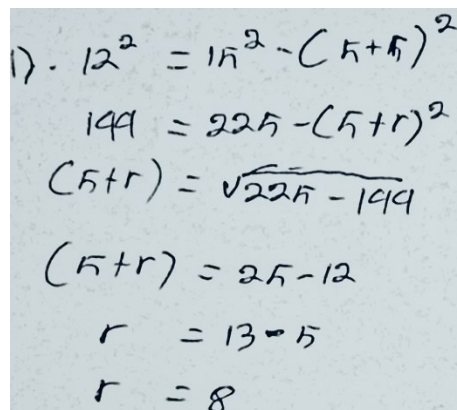 1). 12² = 15² - (5+r)²
144 = 225 - (5+r)²
(5+r) = √225 - 144
(5+r) = 25 - 12
r = 13 - 5
r = 8